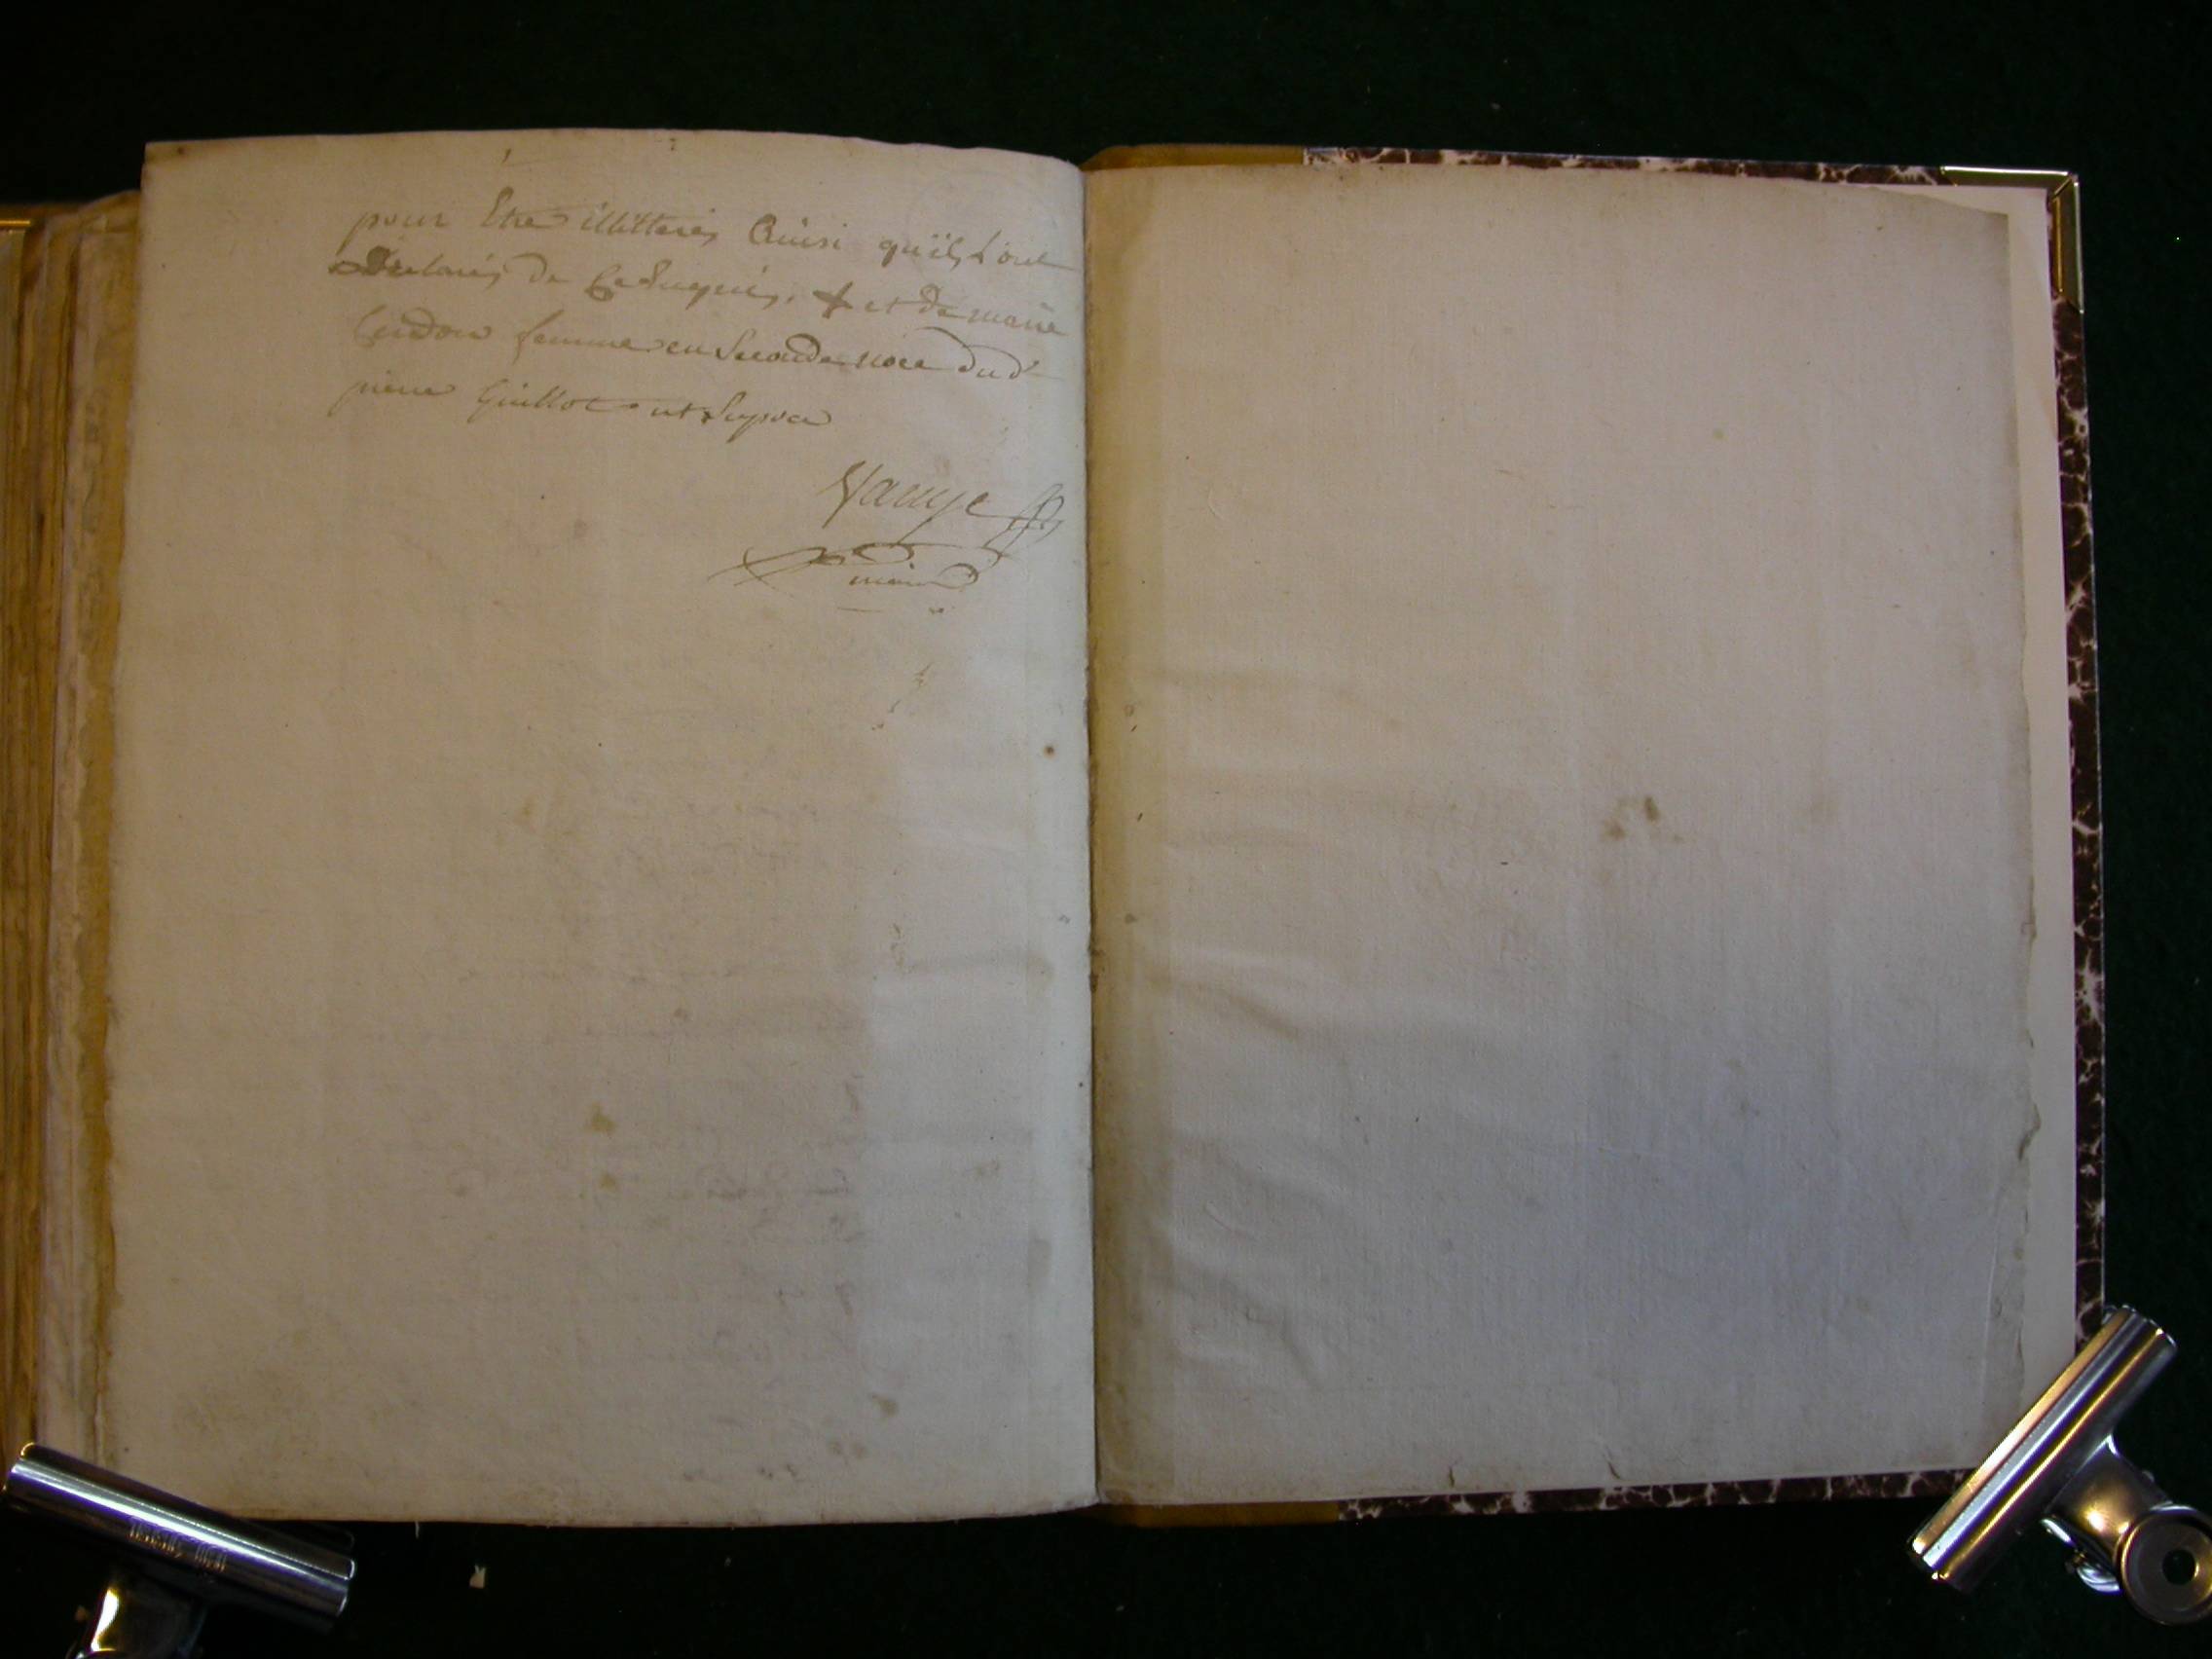 pour Etre illitterés Ainsi qu'ils L'ont
Déclarés de Ce Enquis, + et De marie
femme en Seconde noce dud
pierre Guillot ut Supra
maire